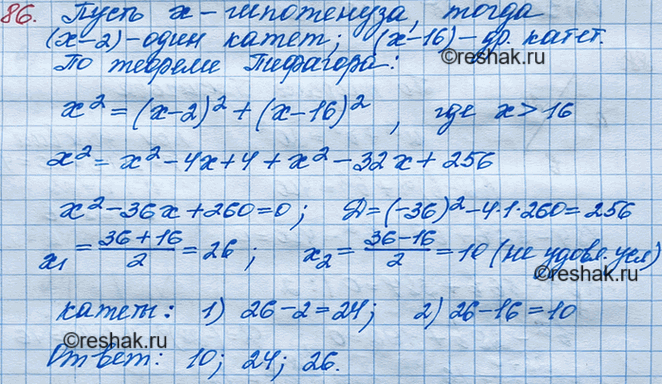 86. Пусть x - гипотенуза, тогда
(x-2) - один катет; (x-16) - др. катет.
©reshak.ru
По теореме Пифагора:
x² = (x-2)² + (x-16)², где x > 16
x² = x² - 4x + 4 + x² - 32x + 256
x² - 36x + 260 = 0; D = (-36)² - 4·1·260 = 256
x₁ = (36+16)/2 = 26; x₂ = (36-16)/2 = 10 (не удовл. усл)
©reshak.ru
катеты: 1) 26-2 = 24; 2) 26-16 = 10
©reshak.ru
Ответ: 10; 24; 26.